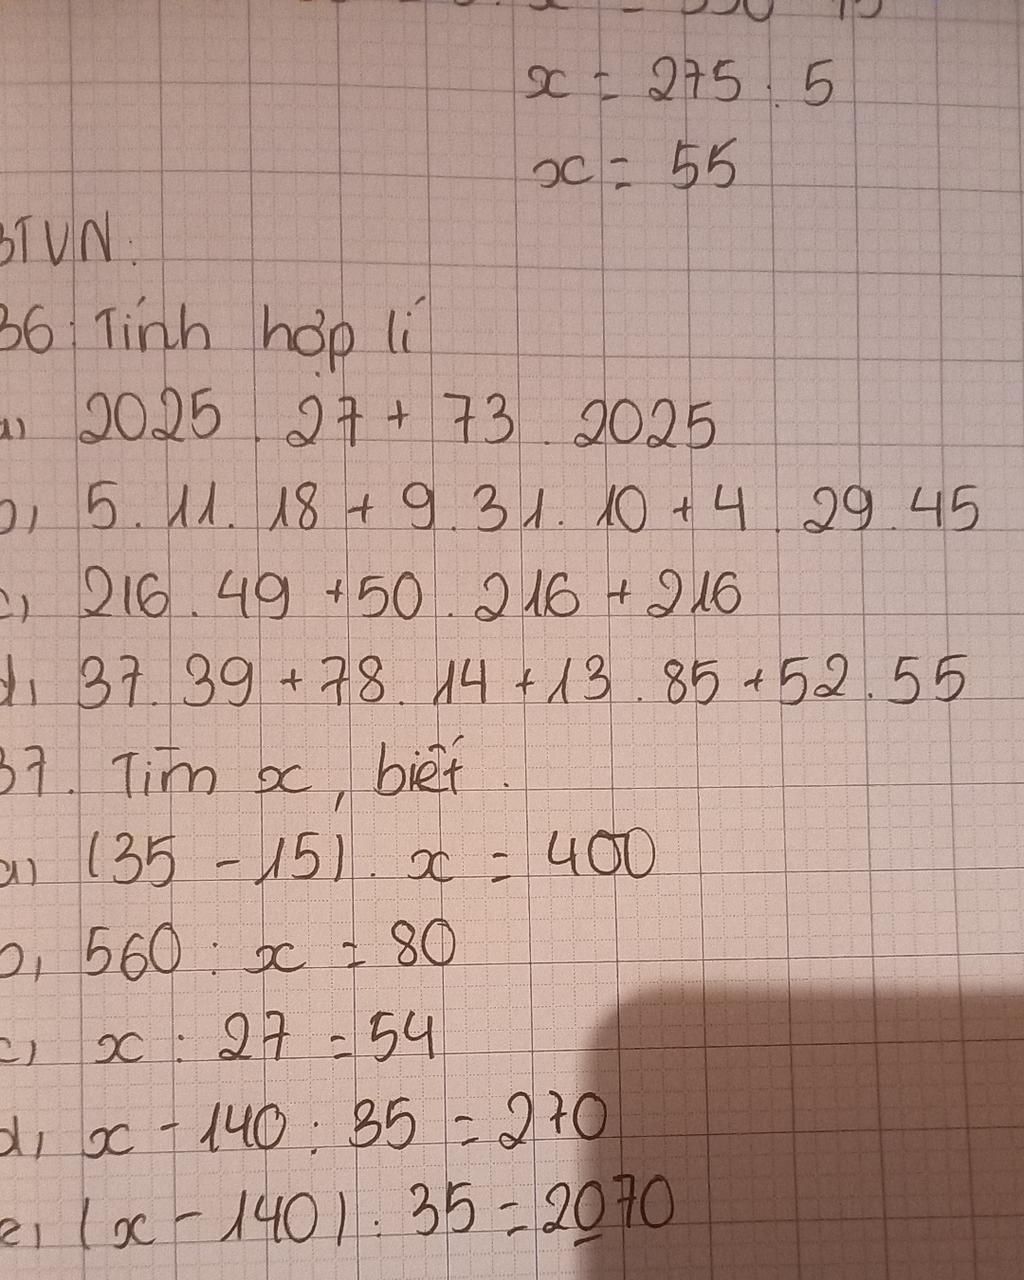 x = 275 : 5
x = 55
BTVN:
36: Tính hợp lí
a) 2025 . 27 + 73 . 2025
b) 5 . 11 . 18 + 9 . 31 . 10 + 4 . 29 . 45
c) 216 . 49 + 50 . 216 + 216
d) 37 . 39 + 78 . 14 + 13 . 85 + 52 . 55
37. Tìm x, biết.
a) (35 - 15) . x = 400
b) 560 : x = 80
c) x : 27 = 54
d) x - 140 : 35 = 270
e) (x - 140) : 35 = 2070